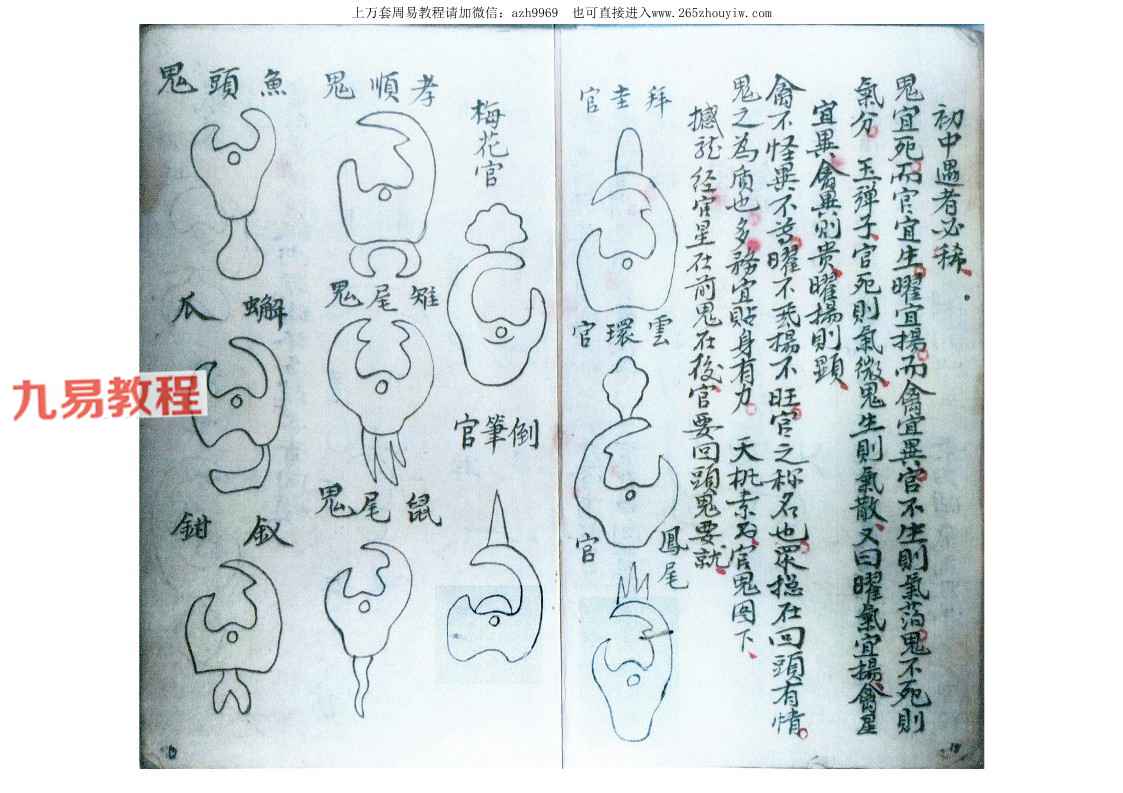 上万套周易教程请加微信：azh9969　也可直接进入www.265zhouyiw.com
初中遇者必稀
鬼宜死而官宜生曜宜揚而禽宜異官不生則氣蕩鬼不死則
氣分　玉彈子官死則氣微鬼生則氣散又曰曜氣宜揚禽星
宜異禽異則貴曜揚則顕
禽不怪異不芳曜不飛揚不旺官之称名也眾摠在回頭有情
鬼之為质也多務宜貼身有力　天机素书官鬼图下
撼龙经官星在前鬼在後官要回頭鬼要就
拜圭官
雲環官
鳳尾官
梅花官
倒筆官
孝順鬼
雉尾鬼
鼠尾鬼
魚頭鬼
蠏爪
釵鉗
九易教程